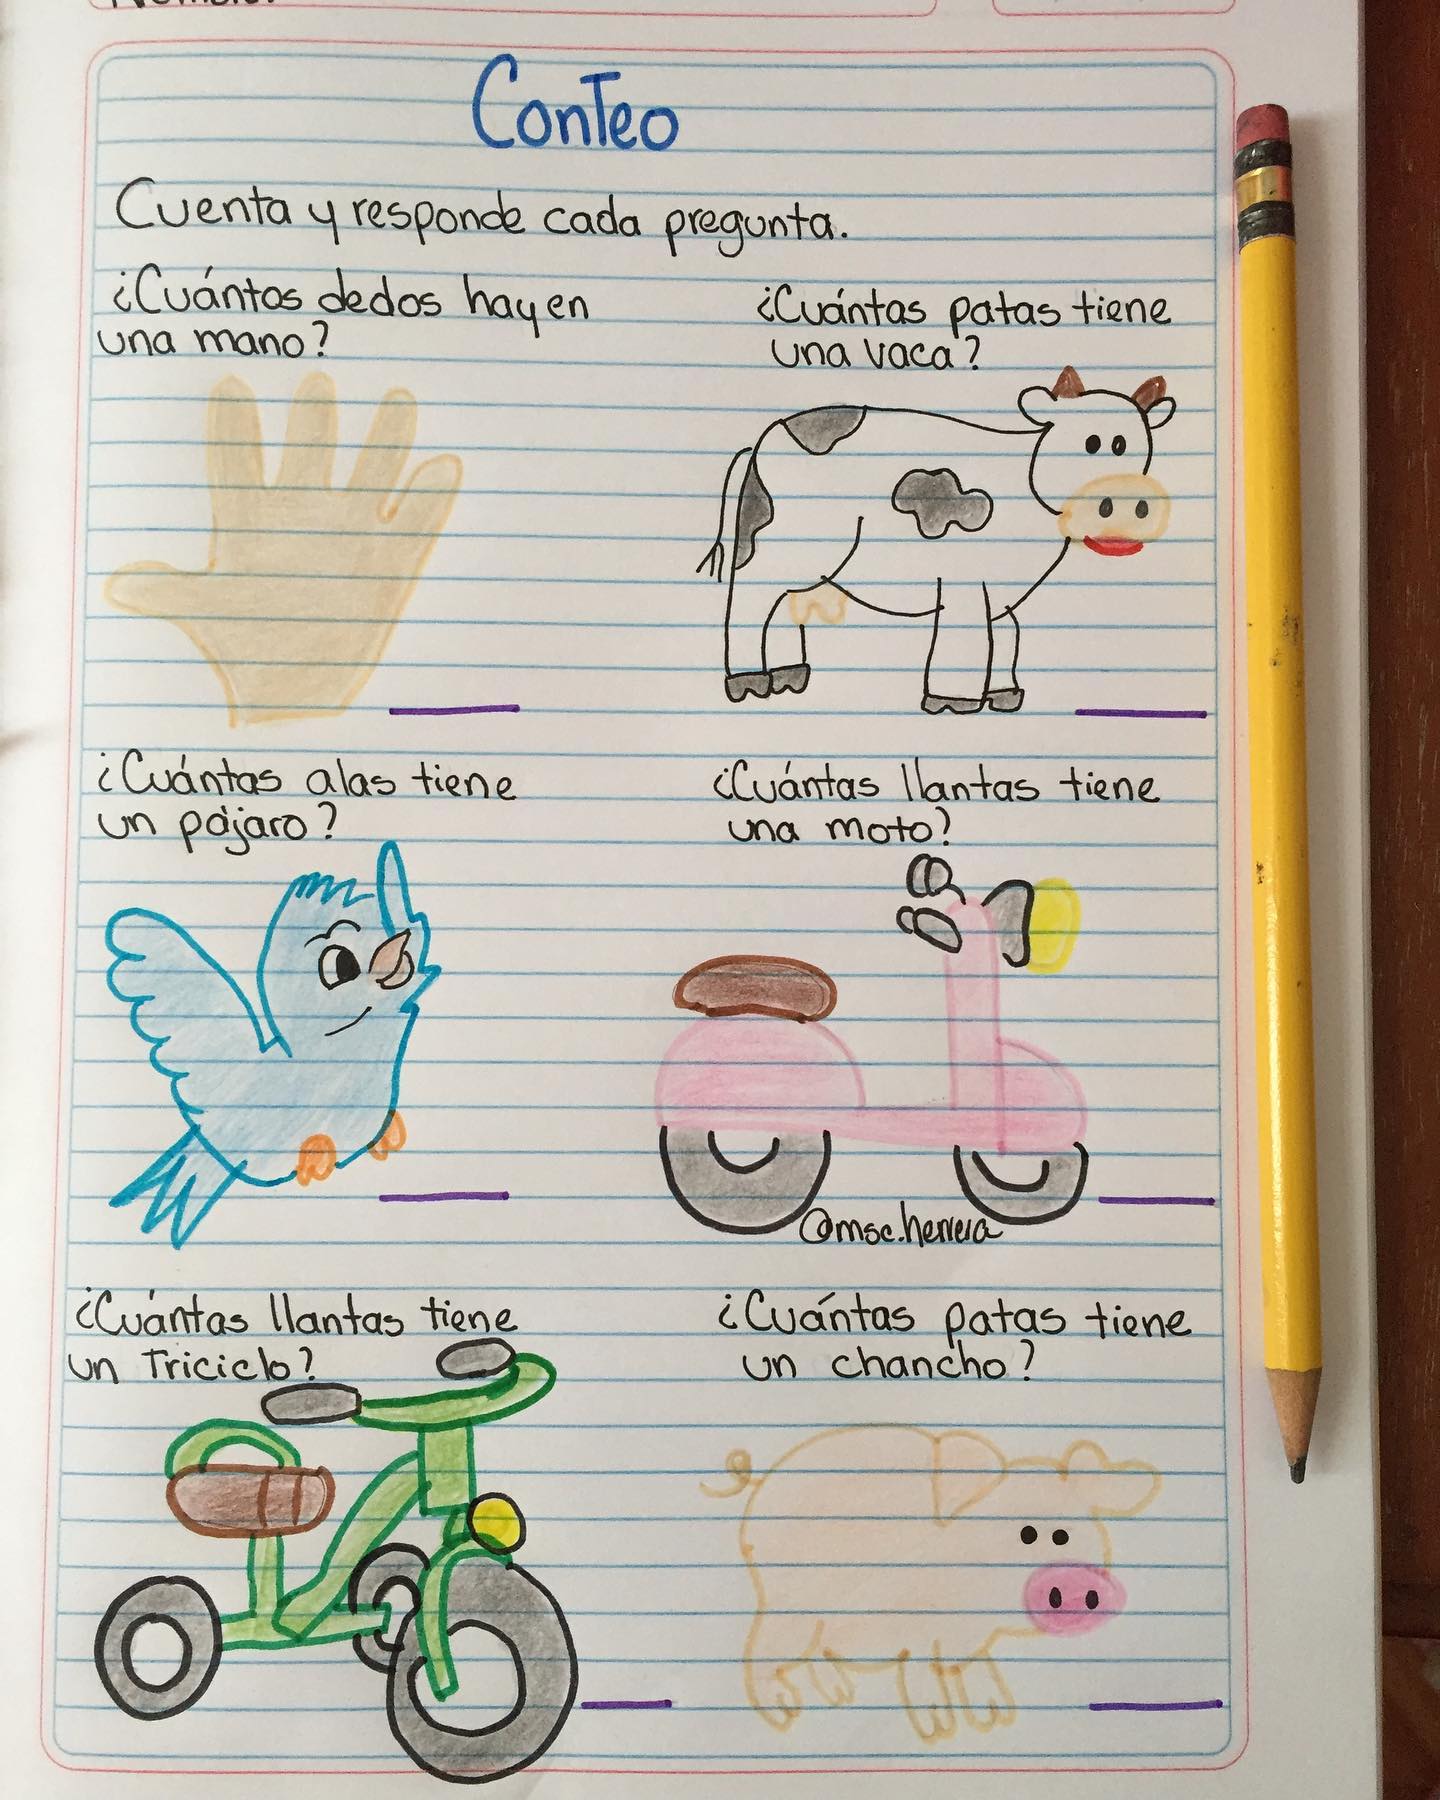 ConTeo
Cuenta y responde cada pregunta.
¿Cuántos dedos hay en
una mano?
¿Cuántas patas tiene
una vaca?
¿Cuántas alas tiene
un pájaro?
¿Cuántas llantas tiene
una moto?
@msc.herrera
¿Cuántas llantas tiene
un Triciclo?
¿Cuántas patas tiene
un chancho?